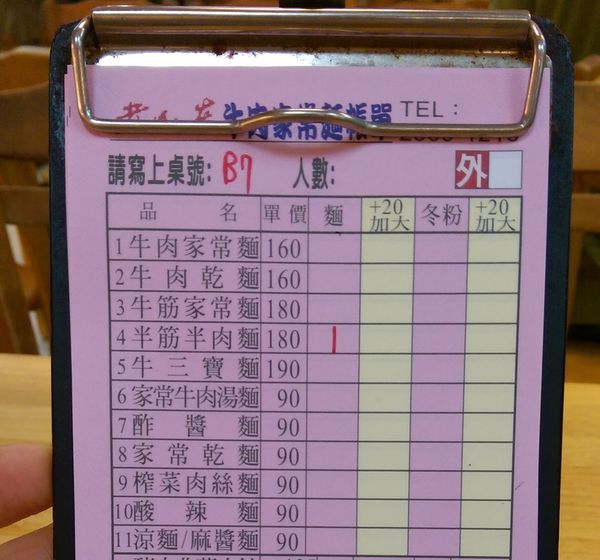 牛肉家常麵帳單 TEL:
請寫上桌號: B7 人數: 外
品名 單價 麵 +20加大 冬粉 +20加大
1 牛肉家常麵 160
2 牛肉乾麵 160
3 牛筋家常麵 180
4 半筋半肉麵 180 1
5 牛三寶麵 190
6 家常牛肉湯麵 90
7 酢醬麵 90
8 家常乾麵 90
9 榨菜肉絲麵 90
10 酸辣麵 90
11 涼麵/麻醬麵 90